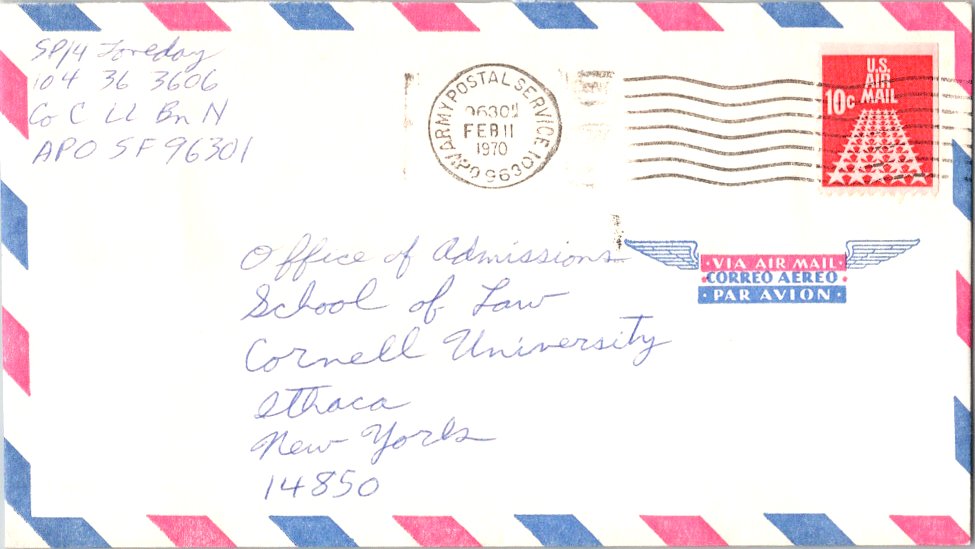 SP/4 Loreday
104 36 3606
Co C LL Bn N
APO SF 96301
ARMY POSTAL SERVICE
96301
FEB 11
1970
APO 96301
U.S.
AIR
MAIL
10c
Office of Admissions
School of Law
Cornell University
Ithaca
New York
14850
·VIA AIR MAIL·
·CORREO AEREO·
·PAR AVION·